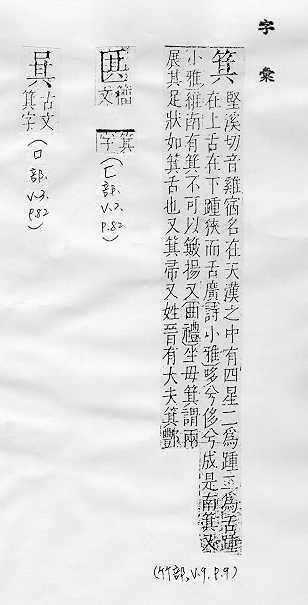 字彙
箕
堅溪切音雞宿名在天漢之中有四星二爲踵二爲舌踵
在上舌在下踵狹而舌廣詩小雅哆兮侈兮成是南箕又
小雅維南有箕不可以簸揚又曲禮坐毋箕謂兩
展其足狀如箕舌也又箕帚又姓晉有大夫箕鄭
(竹部,V.9.P.9)
籀文
箕字
(匚部.V.2.P.82)
古文
箕字
(口部.V.3.P.82)